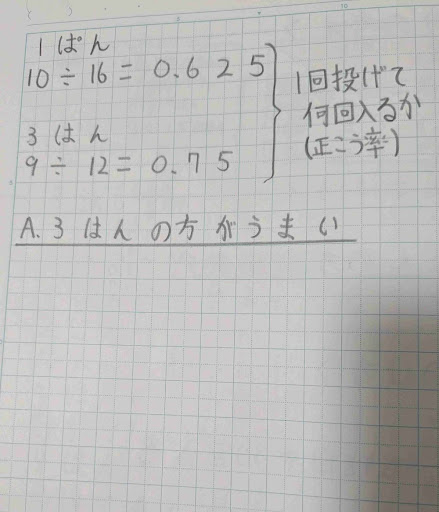 1ぱん
10÷16=0.625
3はん
9÷12=0.75
1回投げて
何回入るか
(正こう率)
A.3はんの方がうまい